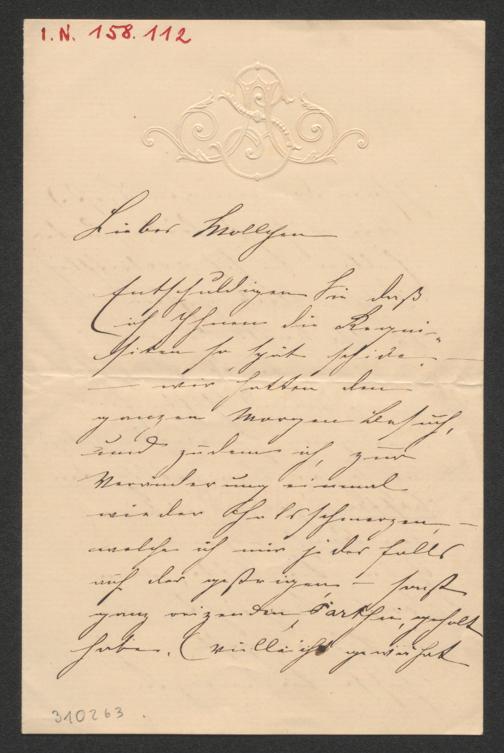 I.N. 158.112
Liebes Mollchen
Entschuldigen Sie daß
ich Ihnen die Requi-
siten so spät schicke. —
— wir hatten den
ganzen Morgen Besuch,
und zudem ich, zur
Veränderung einmal
wieder Halsschmerzen, —
welche ich mir jedenfalls
auf der gestrigen, — sonst
ganz reizenden Parthie, geholt
habe. (Vielleicht
310263.